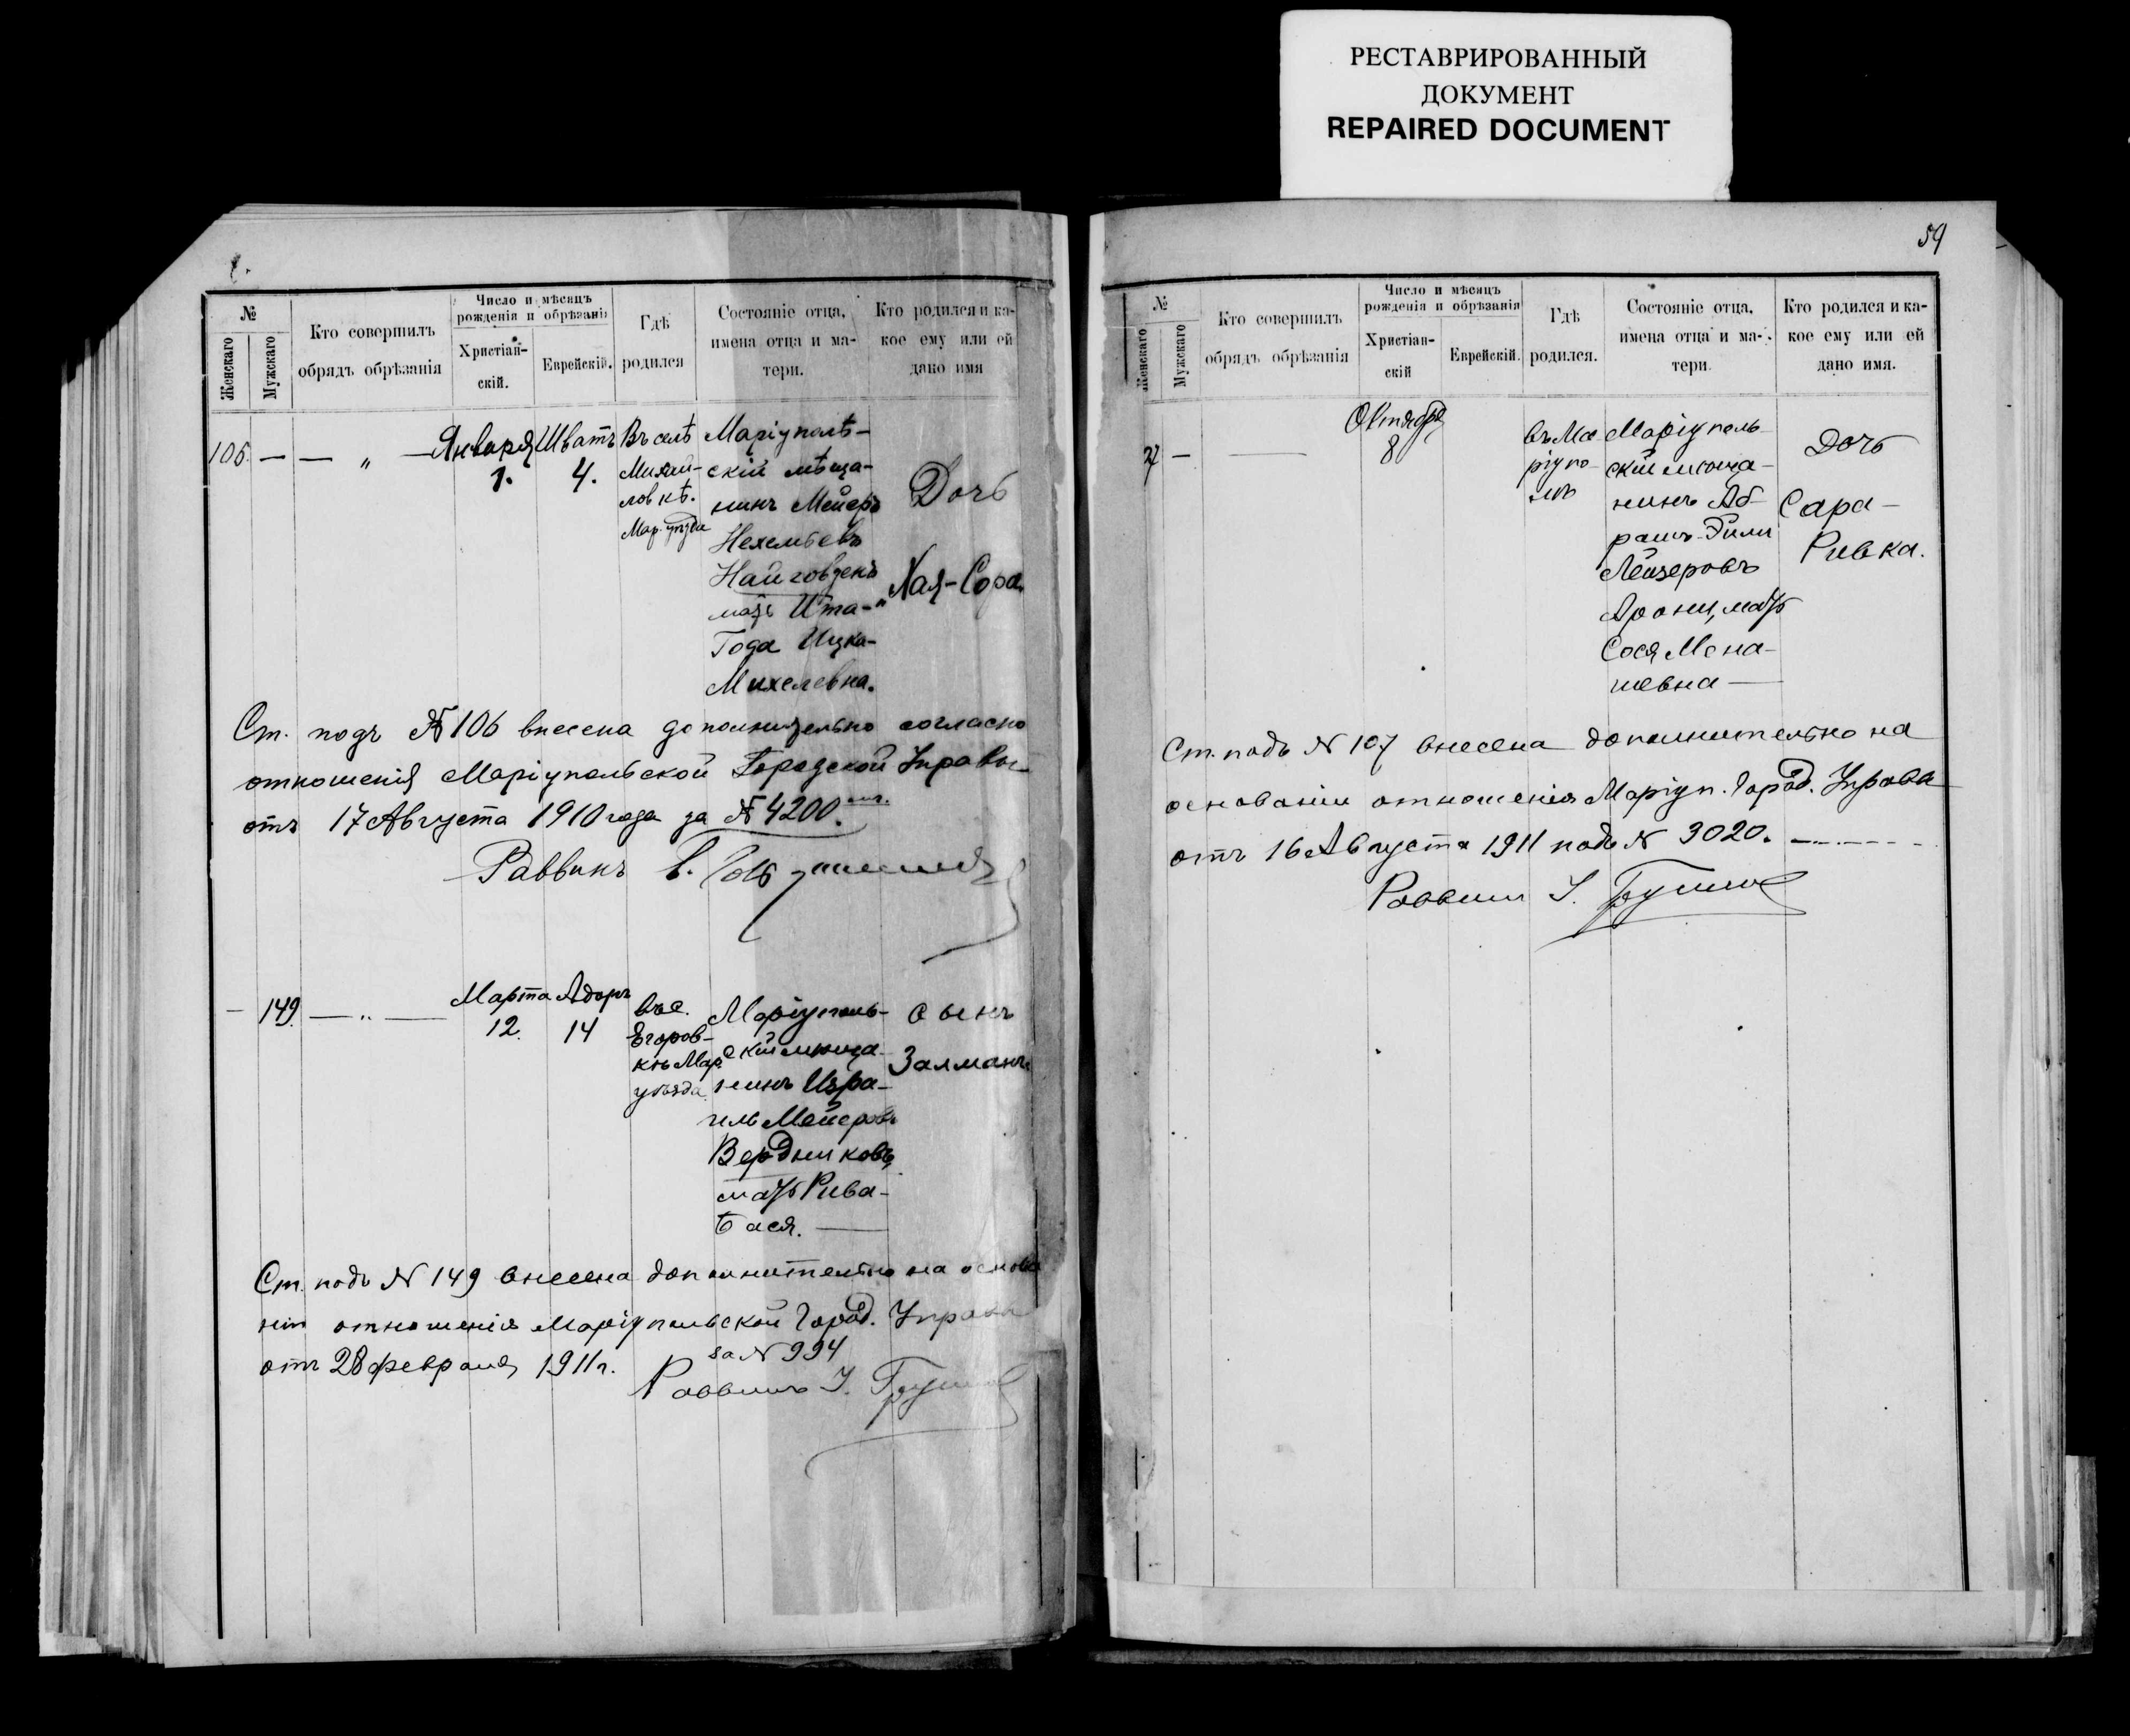 РЕСТАВРИРОВАННЫЙ
ДОКУМЕНТ
REPAIRED DOCUMENT
№
Женскаго
Мужскаго
Кто совершилъ
обрядъ обрѣзанія
Число и мѣсяцъ
рожденія и обрѣзанія
Христіан-
скій.
Еврейскій.
Гдѣ
родился
Состояніе отца,
имена отца и ма-
тери.
Кто родился и ка-
кое ему или ей
дано имя
106. — — „ —
Января
1.
Шватъ
4.
Въ селѣ
Михай-
ловкѣ.
Мар. уѣзда
Маріуполь-
скій мѣща-
нинъ Мейеръ
Нехемьевъ
мать Ита-
Года Ицка-
Михелевна.
Дочь
Хая-Сора
Ст. подъ № 106 внесена дополнительно согласно
отношенія Маріупольской Городской Управы
отъ 17 Августа 1910 года за № 4200.
Раввинъ
— 149. — „ —
Марта
12.
Адоръ
14
въ с.
Егоров-
кѣ Мар.
уѣзда.
Маріуполь-
скій мѣща-
нинъ Изра-
иль Мейеровъ
Бердниковъ,
мать Рива-
Бася. —
Сынъ
Залманъ
Ст. подъ № 149 внесена дополнительно на основа
ніи отношенія Маріупольской Город. Управы
отъ 28 февраля 1911 г. за № 994
Раввинъ
59
№
Женскаго
Мужскаго
Кто совершилъ
обрядъ обрѣзанія
Число и мѣсяцъ
рожденія и обрѣзанія
Христіан-
скій
Еврейскій.
Гдѣ
родился.
Состояніе отца,
имена отца и ма-
тери.
Кто родился и ка-
кое ему или ей
дано имя.
— —
Октября
8
въ Ма
ріупо-
лѣ
Маріуполь-
скій мѣща-
нинъ Аб-
рамъ
Лейзеровъ
мать
Сося Мена-
шевна —
Дочь
Сара-
Ривка.
Ст. подъ № 107 внесена дополнительно на
основаніи отношенія Маріуп. Город. Управы
отъ 16 Августа 1911 подъ № 3020.
Раввинъ